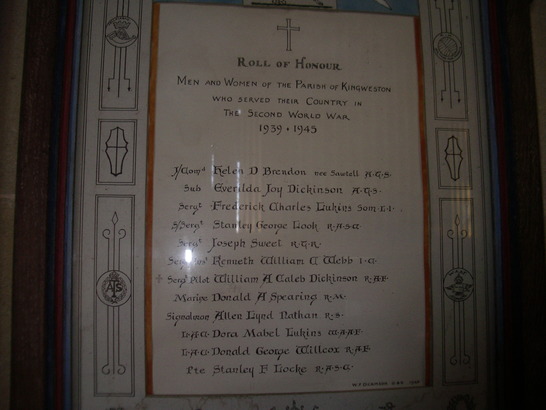 Roll of Honour
Men and Women of the Parish of Kingweston
who served their Country in
The Second World War
1939 · 1945
J/Comd Helen D Brendon nee Sawtell A·T·S·
Sub Everilda Joy Dickinson A·T·S·
Sergt Frederick Charles Lukins Som·L·I·
S/Sergt Stanley George Look R·A·S·C·
Sergt Joseph Sweet
Kenneth William C Webb
Sergt Pilot William A Caleb Dickinson R·A·F·
Marine Donald A Spearing R·M·
Signalman Allen Nathan R·S·
L·A·C· Dora Mabel Lukins W·A·A·F·
L·A·C· Donald George Willcox R·A·F·
Pte Stanley F Locke R·A·S·C·
ATS